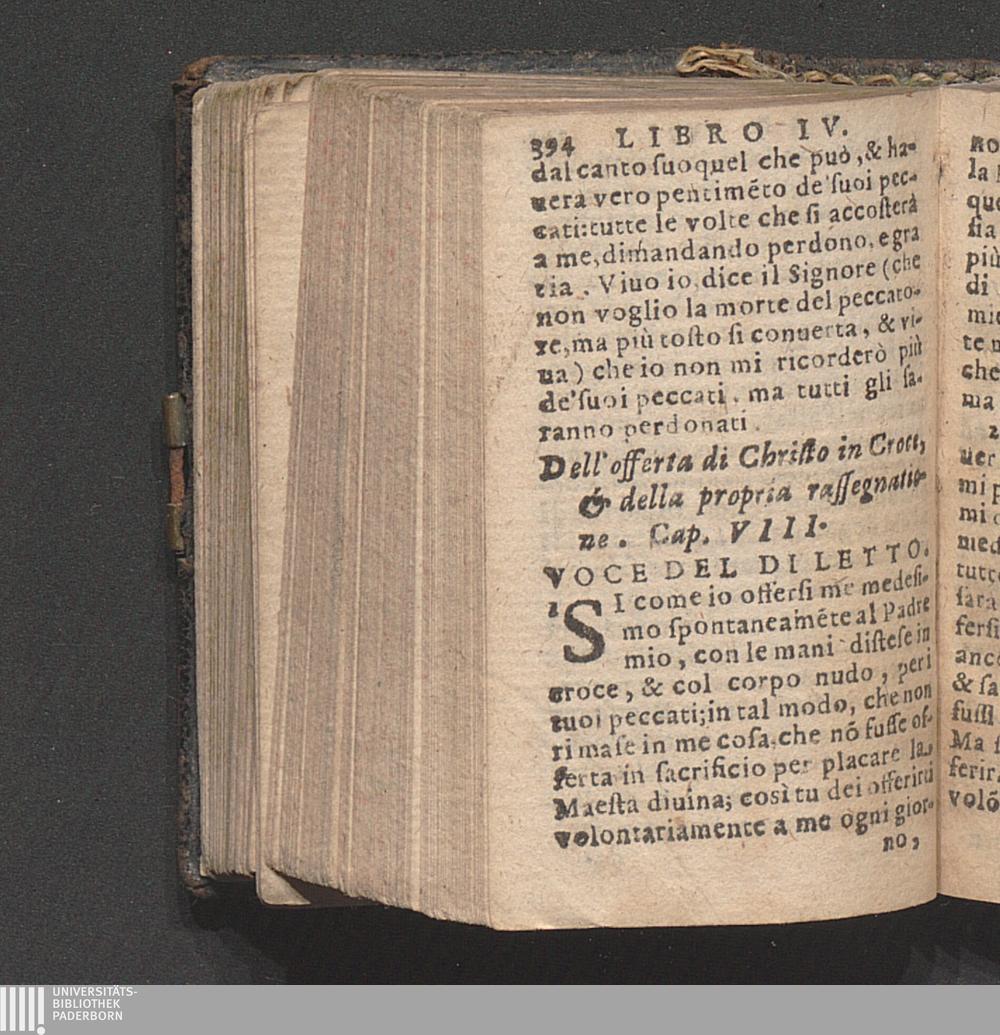 394 LIBRO IV.
dal canto ſuo quel che può, & ha-
uera vero pentimẽto de'ſuoi pec-
cati: tutte le volte che ſi accoſterà
a me, dimandando perdono, e gra
tia. Viuo io, dice il Signore (che
non voglio la morte del peccato-
re, ma più toſto ſi conuerta, & vi-
ua) che io non mi ricorderò più
de'ſuoi peccati. ma tutti gli ſa-
ranno perdonati.
Dell'offerta di Chriſto in Croce,
& della propria raſſegnatio-
ne. Cap. VIII.
VOCE DEL DILETTO.
1 SI come io offerſi me medeſi-
mo ſpontaneamẽte al Padre
mio, con le mani diſteſe in
croce, & col corpo nudo, per i
tuoi peccati; in tal modo, che non
rimaſe in me coſa, che nõ fuſſe of-
ferta in ſacrificio per placare la
Maeſta diuina; così tu dei offerirti
volontariamente a me ogni gior-
no,
la
que
ſia
più
di
mie
te
che
ma
2
uer
mi
mi
med
tutto
ſarà
ferſi
anco
& ſa
fuſſi
Ma
ferir
volõ
UNIVERSITÄTS-
BIBLIOTHEK
PADERBORN